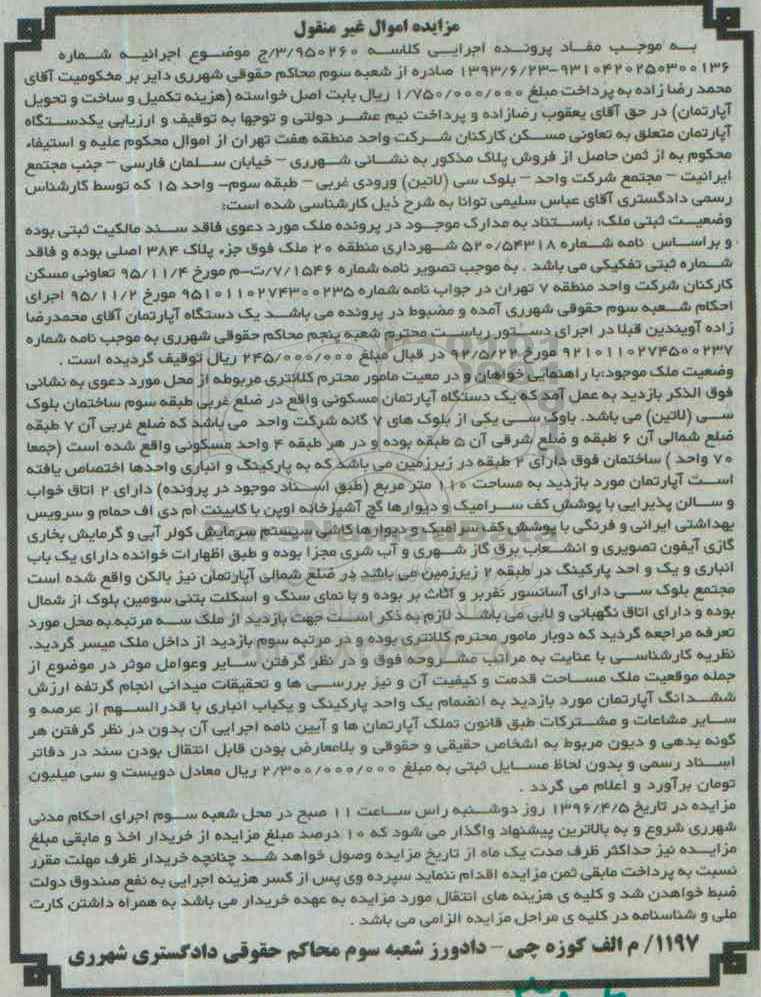 مزایده اموال غیر منقول
به موجب مفاد پرونده اجرایی کلاسه ۳/۹۵۰۲۶۰/ج موضوع اجرائیه شماره
۹۳۱۰۴۲۰۲۵۰۳۰۰۱۳۶-۱۳۹۳/۶/۲۳ صادره از شعبه سوم محاکم حقوقی شهرری دایر بر محکومیت آقای
محمد رضا زاده به پرداخت مبلغ ۱/۷۵۰/۰۰۰/۰۰۰ ریال بابت اصل خواسته (هزینه تکمیل و ساخت و تحویل
آپارتمان) در حق آقای یعقوب رضازاده و پرداخت نیم عشر دولتی و توجها به توقیف و ارزیابی یکدستگاه
آپارتمان متعلق به تعاونی مسکن کارکنان شرکت واحد منطقه هفت تهران از اموال محکوم علیه و استیفاء
محکوم به از ثمن حاصل از فروش پلاک مذکور به نشانی شهرری – خیابان سلمان فارسی – جنب مجتمع
ایرانیت – مجتمع شرکت واحد – بلوک سی (لاتین) ورودی غربی – طبقه سوم– واحد ۱۵ که توسط کارشناس
رسمی دادگستری آقای عباس سلیمی توانا به شرح ذیل کارشناسی شده است:
وضعیت ثبتی ملک: باستناد به مدارک موجود در پرونده ملک مورد دعوی فاقد سند مالکیت ثبتی بوده
و براساس نامه شماره ۵۲۰/۵۴۳۱۸ شهرداری منطقه ۲۰ ملک فوق جزء پلاک ۳۸۴ اصلی بوده و فاقد
شماره ثبتی تفکیکی می باشد . به موجب تصویر نامه شماره ۷/۱۵۴۶/ت–م مورخ ۹۵/۱۱/۴ تعاونی مسکن
کارکنان شرکت واحد منطقه ۷ تهران در جواب نامه شماره ۹۵۱۰۱۱۰۲۷۴۳۰۰۲۳۵ مورخ ۹۵/۱۱/۲ اجرای
احکام شعبه سوم حقوقی شهرری آمده و مضبوط در پرونده می باشد یک دستگاه آپارتمان آقای محمدرضا
زاده آویندین قبلا در اجرای دستور ریاست محترم شعبه پنجم محاکم حقوقی شهرری به موجب نامه شماره
۹۲۱۰۱۱۰۲۷۴۵۰۰۲۳۷ مورخ ۹۲/۵/۲۲ در قبال مبلغ ۲۴۵/۰۰۰/۰۰۰ ریال توقیف گردیده است .
وضعیت ملک موجود:با راهنمایی خواهان و در معیت مامور محترم کلانتری مربوطه از محل مورد دعوی به نشانی
فوق الذکر بازدید به عمل آمد که یک دستگاه آپارتمان مسکونی واقع در ضلع غربی طبقه سوم ساختمان بلوک
سی (لاتین) می باشد. باوک سی یکی از بلوک های ۷ گانه شرکت واحد می باشد که ضلع غربی آن ۷ طبقه
ضلع شمالی آن ۶ طبقه و ضلع شرقی آن ۵ طبقه بوده و در هر طبقه ۴ واحد مسکونی واقع شده است (جمعا
۷۰ واحد ) ساختمان فوق دارای ۲ طبقه در زیرزمین می باشد که به پارکینگ و انباری واحدها اختصاص یافته
است آپارتمان مورد بازدید به مساحت ۱۱۰ متر مربع (طبق اسناد موجود در پرونده) دارای ۲ اتاق خواب
و سالن پذیرایی با پوشش کف سرامیک و دیوارها گچ آشپزخانه اوپن با کابینت ام دی اف حمام و سرویس
بهداشتی ایرانی و فرنگی با پوشش کف سرامیک و دیوارها کاشی سیستم سرمایش کولر آبی و گرمایش بخاری
گازی آیفون تصویری و انشعاب برق گاز شهری و آب شری مجزا بوده و طبق اظهارات خوانده دارای یک باب
انباری و یک و احد پارکینگ در طبقه ۲ زیرزمین می باشد در ضلع شمالی آپارتمان نیز بالکن واقع شده است
مجتمع بلوک سی دارای آسانسور نفربر و اثاث بر بوده و با نمای سنگ و اسکلت بتنی سومین بلوک از شمال
بوده و دارای اتاق نگهبانی و لابی می باشد لازم به ذکر است جهت بازدید از ملک سه مرتبه به محل مورد
تعرفه مراجعه گردید که دوبار مامور محترم کلانتری بوده و در مرتبه سوم بازدید از داخل ملک میسر گردید.
نظریه کارشناسی با عنایت به مراتب مشروحه فوق و در نظر گرفتن سایر وعوامل موثر در موضوع از
جمله موقعیت ملک مساحت قدمت و کیفیت آن و نیز بررسی ها و تحقیقات میدانی انجام گرتفه ارزش
ششدانگ آپارتمان مورد بازدید به انضمام یک واحد پارکینگ و یکباب انباری با قدرالسهم از عرصه و
سایر مشاعات و مشترکات طبق قانون تملک آپارتمان ها و آیین نامه اجرایی آن بدون در نظر گرفتن هر
گونه بدهی و دیون مربوط به اشخاص حقیقی و حقوقی و بلامعارض بودن قابل انتقال بودن سند در دفاتر
اسناد رسمی و بدون لحاظ مسایل ثبتی به مبلغ ۲/۳۰۰/۰۰۰/۰۰۰ ریال معادل دویست و سی میلیون
تومان برآورد و اعلام می گردد .
مزایده در تاریخ ۱۳۹۶/۴/۵ روز دوشنبه راس ساعت ۱۱ صبح در محل شعبه سوم اجرای احکام مدنی
شهرری شروع و به بالاترین پیشنهاد واگذار می شود که ۱۰ درصد مبلغ مزایده از خریدار اخذ و مابقی مبلغ
مزایده نیز حداکثر ظرف مدت یک ماه از تاریخ مزایده وصول خواهد شد چنانچه خریدار ظرف مهلت مقرر
نسبت به پرداخت مابقی ثمن مزایده اقدام ننماید سپرده وی پس از کسر هزینه اجرایی به نفع صندوق دولت
ضبط خواهدن شد و کلیه ی هزینه های انتقال مورد مزایده به عهده خریدار می باشد به همراه داشتن کارت
ملی و شناسنامه در کلیه ی مراحل مزایده الزامی می باشد .
۱۱۹۷/ م الف کوزه چی – دادورز شعبه سوم محاکم حقوقی دادگستری شهرری